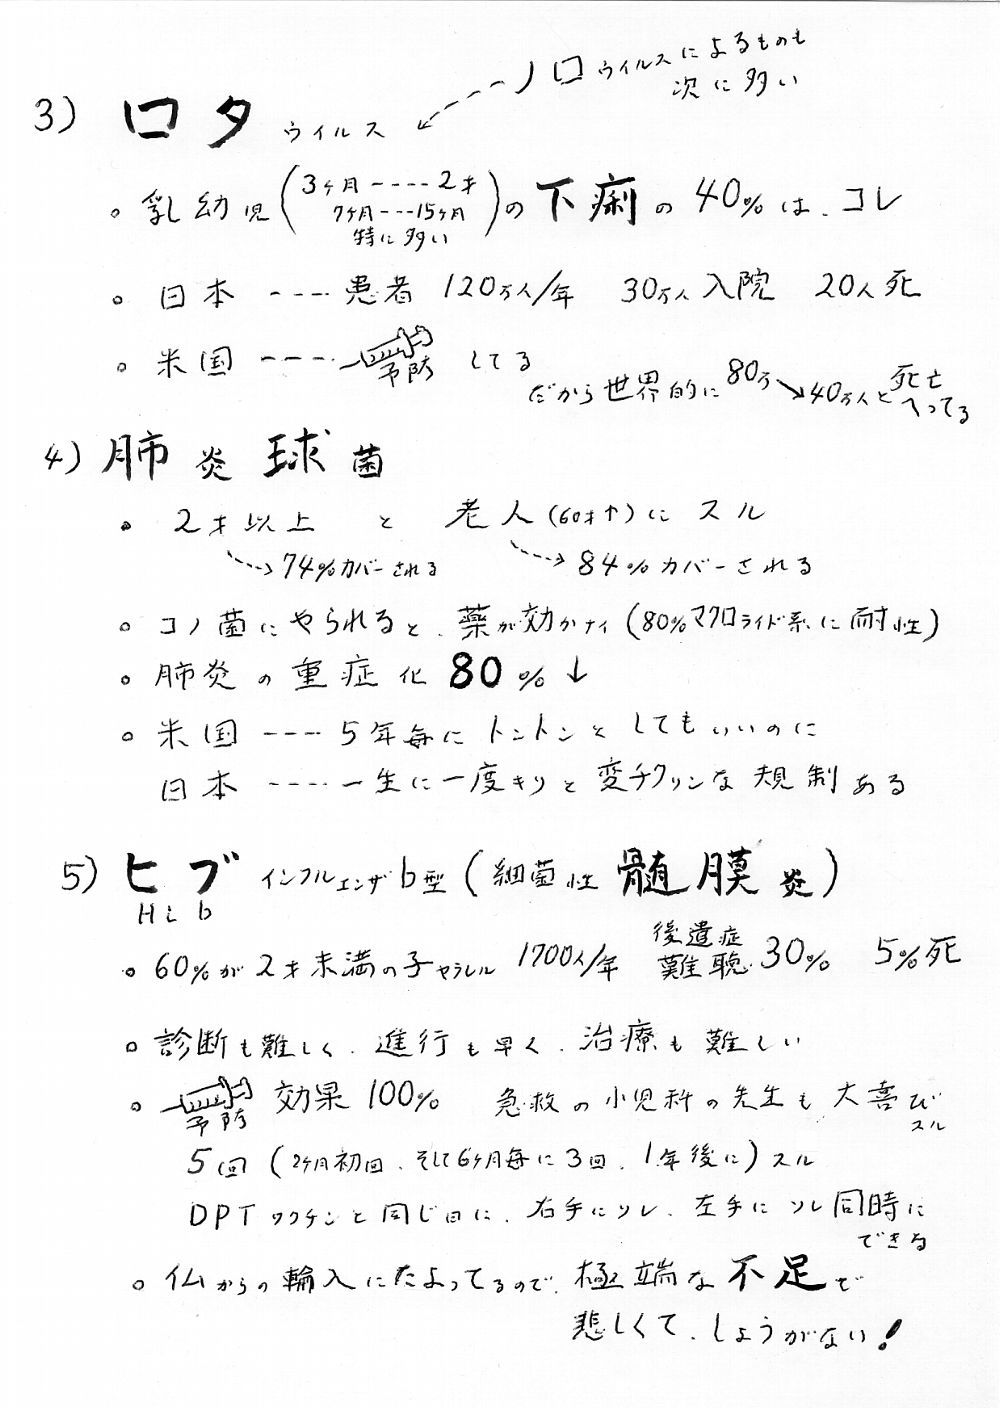 ノロウイルスによるものも
次に多い
3) ロタウイルス
。乳幼児(3ヶ月----2才 7ヶ月---15ヶ月 特に多い)の下痢の40%は、コレ
。日本 ---- 患者 120万人/年 30万人入院 20人死
。米国 ---- 予防 してる
だから世界的に80万→40万人と死亡へってる
4) 肺炎球菌
。2才以上 と 老人(60才↑)にスル
→74%カバーされる →84%カバーされる
。コノ菌にやられると、薬が効かナイ(80%マクロライド系に耐性)
。肺炎の重症化80%↓
。米国 ---- 5年毎にトントンとしてもいいのに
日本 ---- 一生に一度キリと変チクリンな規制ある
5) ヒブ インフルエンザb型(細菌性髄膜炎)
Hib
。60%が2才未満の子ヤラレル 1700人/年 後遺症 難聴30% 5%死
。診断も難しく、進行も早く、治療も難しい
。予防 効果100% 急救の小児科の先生も大喜びスル
5回(2ヶ月初回、そして6ヶ月毎に3回、1年後に)スル
DPTワクチンと同じ日に、右手にソレ、左手にソレ同時に
できる
。仏からの輸入にたよってるので、極端な不足で
悲しくて、しょうがない!